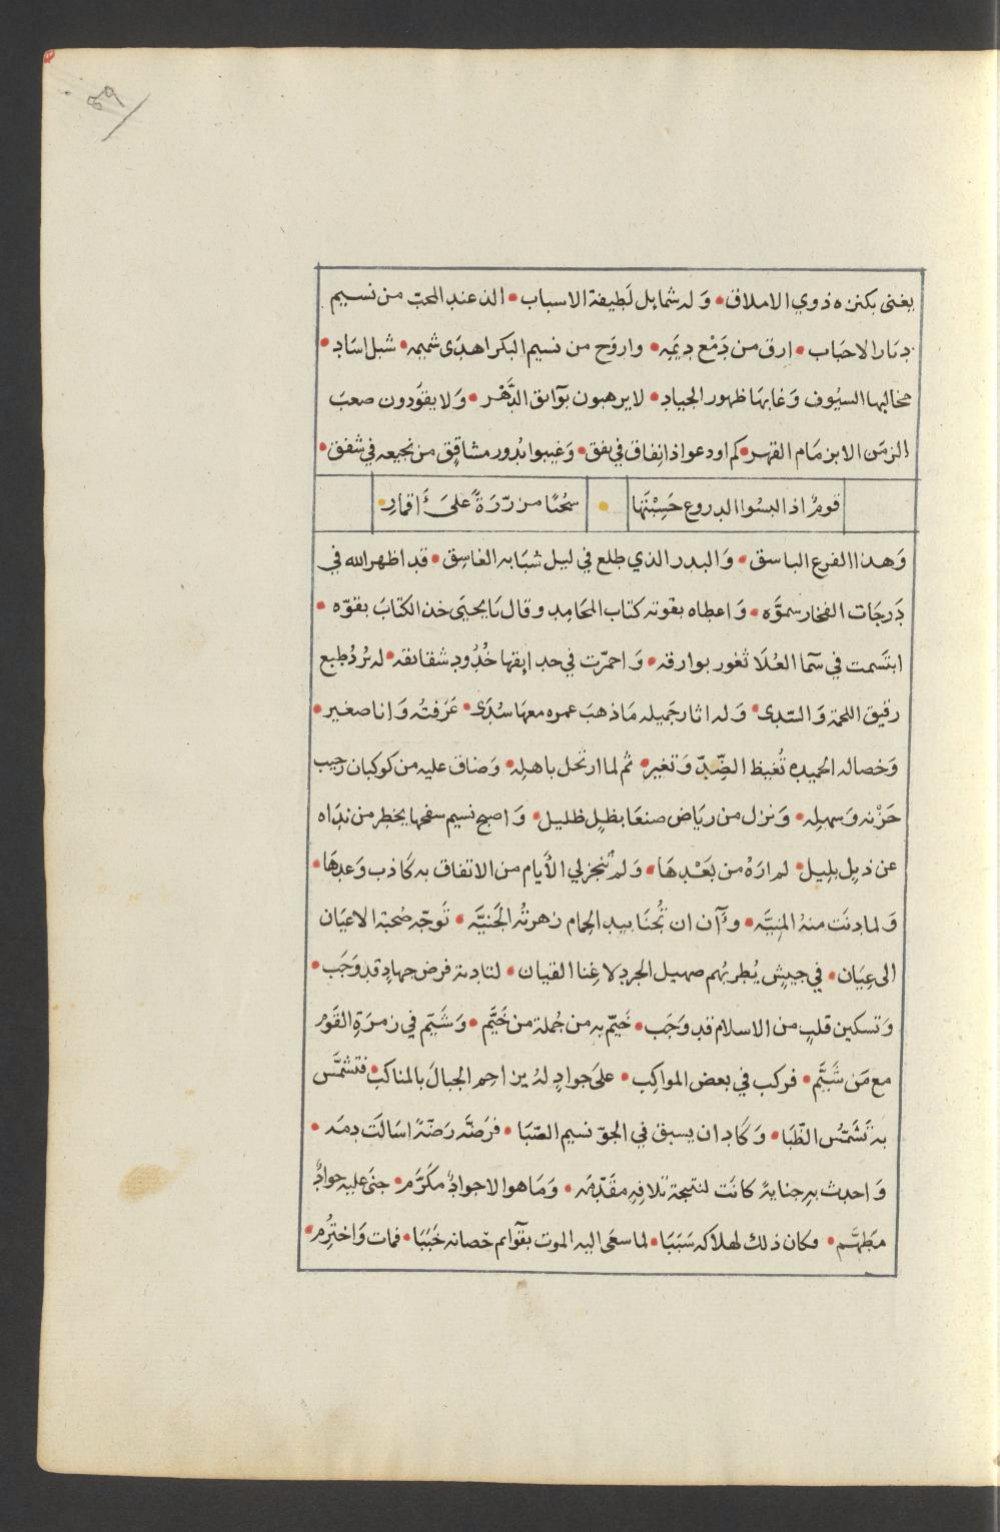 ٥٩
يغنى بكنزه ذوي الاملاق • وَله شمايل لَطيفة الاسباب • الذ عند المحبّ من نسيم
ديَار الاحبَاب • ارق من دَمْع دِيَمِه • واروَح من نسيم البكر اهدَى شميمه • شبل اسَادٍ •
مخاليبها السيُوف وَغابهَا ظهور الجياد • لا يرهبون بوَآئق الدَّهْر • وَلا يقوَدون صعبَ
الزمَن الا بزمَام القهر • كم اودعوا ذا نِفاق في نفق • وَغيبوا بُدور مشاقِق من نجيعه في شفق •
قومٌ اذا لبسُوا الدروع حَسِبْتَها • سُحُبًا مزرّرَةً عَلىَ أَقمارِ •
وَهذا الفرع الباسق • وَالبدر الذي طلع في ليل شبَابه الغاسِق • قد اظهر الله في
دَرجَات الفخار سموَّه • وَاعطاه بقوته كتاب المحَامِد وقال يَا يحيَى خذ الكتابَ بقوّه •
ابتَسمت في سَما العُلَا ثغور بوارقه • وَاحمرّت في حدايقها خُدُود شقائقه • له بُردُ طبع
رقيق اللحمة وَالسّدى • وَله اثار جَميله مَا ذهبَ عمره معهَا سُدَى • عَرَفتُه وَانا صغير •
وَخصاله الحميده تُغيظ الضِّدّ وَتغير • ثم لما ارتحل باهلِه • وَضاق عليه من كوكبان رحيب
حَزْنه وَسهلِه • وَنزل من ريَاض صنعَا بظلٍ ظليل • وَاصبح نسيم سفحها يخطر من ندَاه
عن ذيل بليل • لم ارَهُ من بَعْدِهَا • وَلم تنجز لي الأيام من الاتفاق به كَاذب وَعدِهَا •
وَلما دنَت منهُ المنِيَّه • وَآن ان تُجْنَا بيد الحِمام زهرتُه الجَنيَّه • تَوجّه صُحبة الاعيَان
الى عِيَان • في جيشٍ يُطربُهم صهيل الجرد لا غِنا القيان • لتادية فرض جهادٍ قد وَجَب •
وَتسكين قلبٍ من الاسلام قد وَجَب • خَيّم به من جُملة من خَيَّم • وَشَيّم في زمرَةِ القَوْم
مع مَن شَيَّم • فركب في بعض المواكِب • عَلىَ جوادٍ لهُ يزاحم الجبالَ بالمناكب • فتشمَّس
به تَشَمّسَ الظّبَا • وَكَاد ان يسبق في الجوّ نسيم الصّبَا • فرَضَّه رَضّةً اسَالَت دمَه •
وَاحدث بهِ جنايةً كانَت لنتيجة تلافِهِ مقَدِّمَه • وَمَا هو الا جوادٌ مكَرَّم • جنَى عليهِ جوادٌ
مطهَّم • فكان ذلك لهلاكه سَبَبَا • لما سعَى اليه الموت بقوَآئم حصانه خَبَبَا • فمات وَاختُرِم •